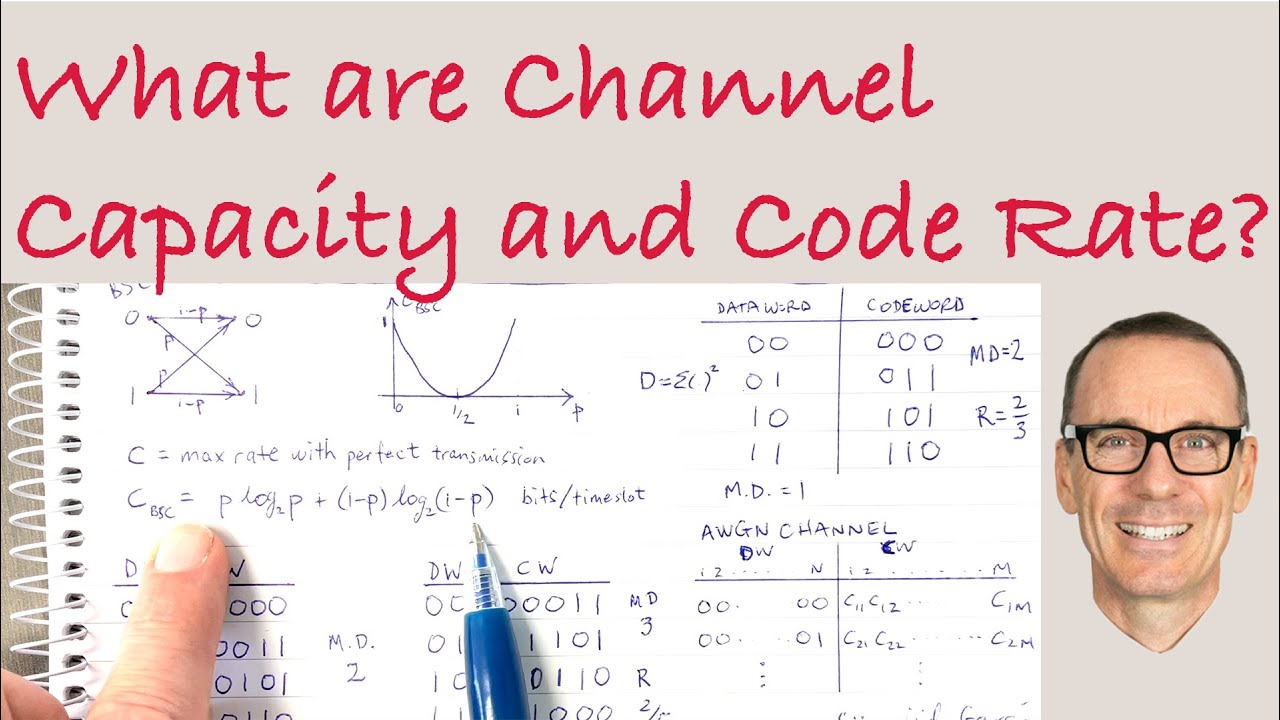 What are Channel
Capacity and Code Rate?
BSC
0 1-p 0
p
p
1 1-p 1
C BSC
1
0 1/2 1 p
C = max rate with perfect transmission
C BSC = p log₂p + (1-p) log₂(1-p) bits/timeslot
DATAWORD CODEWORD
00 000
01 011
10 101
11 110
D=Σ( )²
MD=2
R=2/3
M.D. = 1
D W
000
0011
0101
0110
M.D.
2
DW CW
00 00011
01 1101
10 0110
11 1000
MD
3
R
AWGN CHANNEL
DW CW
1 2 ..... N 1 2 ........ M
00. 00 C₁₁C₁₂ .. C₁M
00 ..... 01 C₂₁C₂₂ ....... C₂M
⋮ ⋮